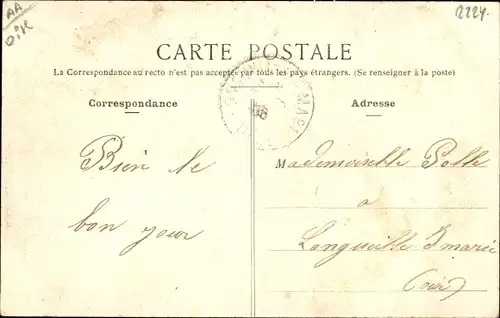 AA
2224.
CARTE POSTALE
La Correspondance au recto n'est pas acceptée par tous les pays étrangers. (Se renseigner à la poste)
Correspondance
Adresse
Bien le
bon jour
Mademoiselle
a
Longueville